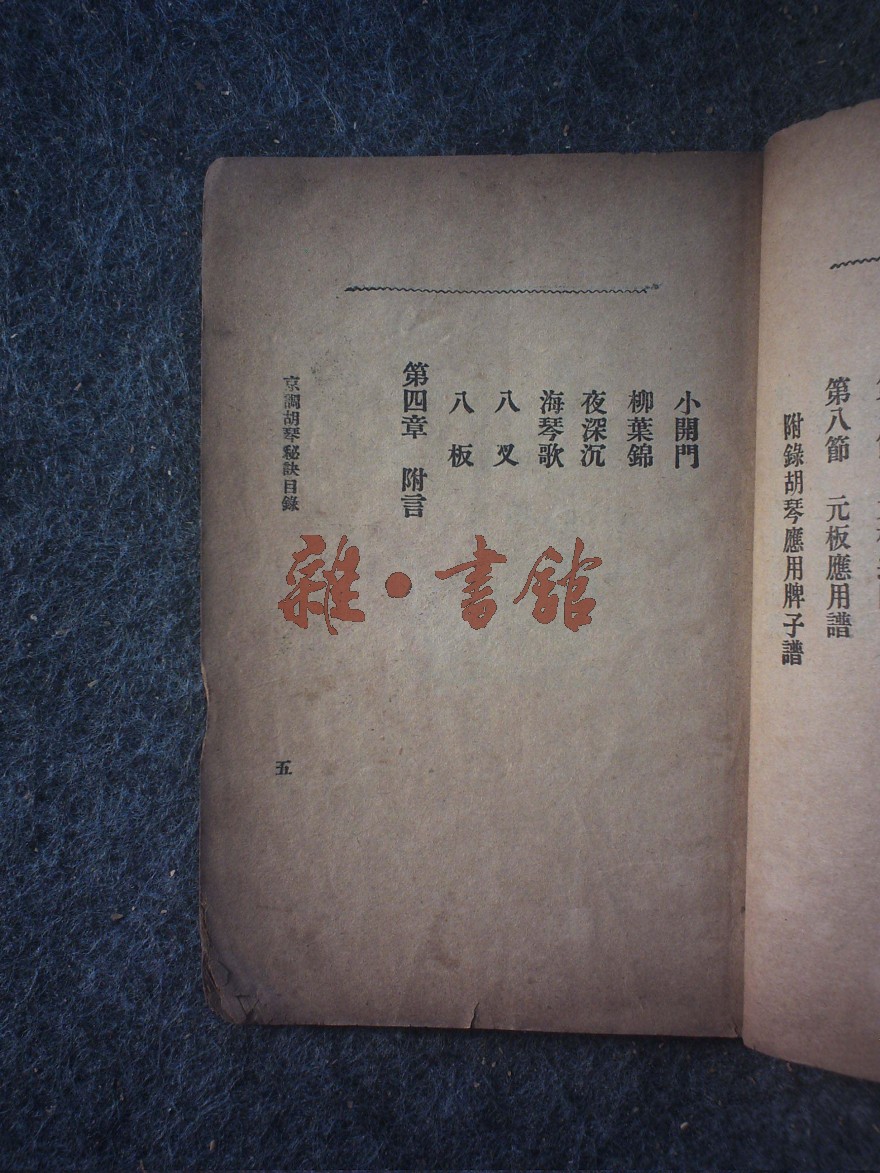 第八節　元板應用譜
附錄胡琴應用牌子譜
小開門
柳葉錦
夜深沉
海琴歌
八叉
八板
第四章　附言
京調胡琴秘訣目錄
五
雜·書館